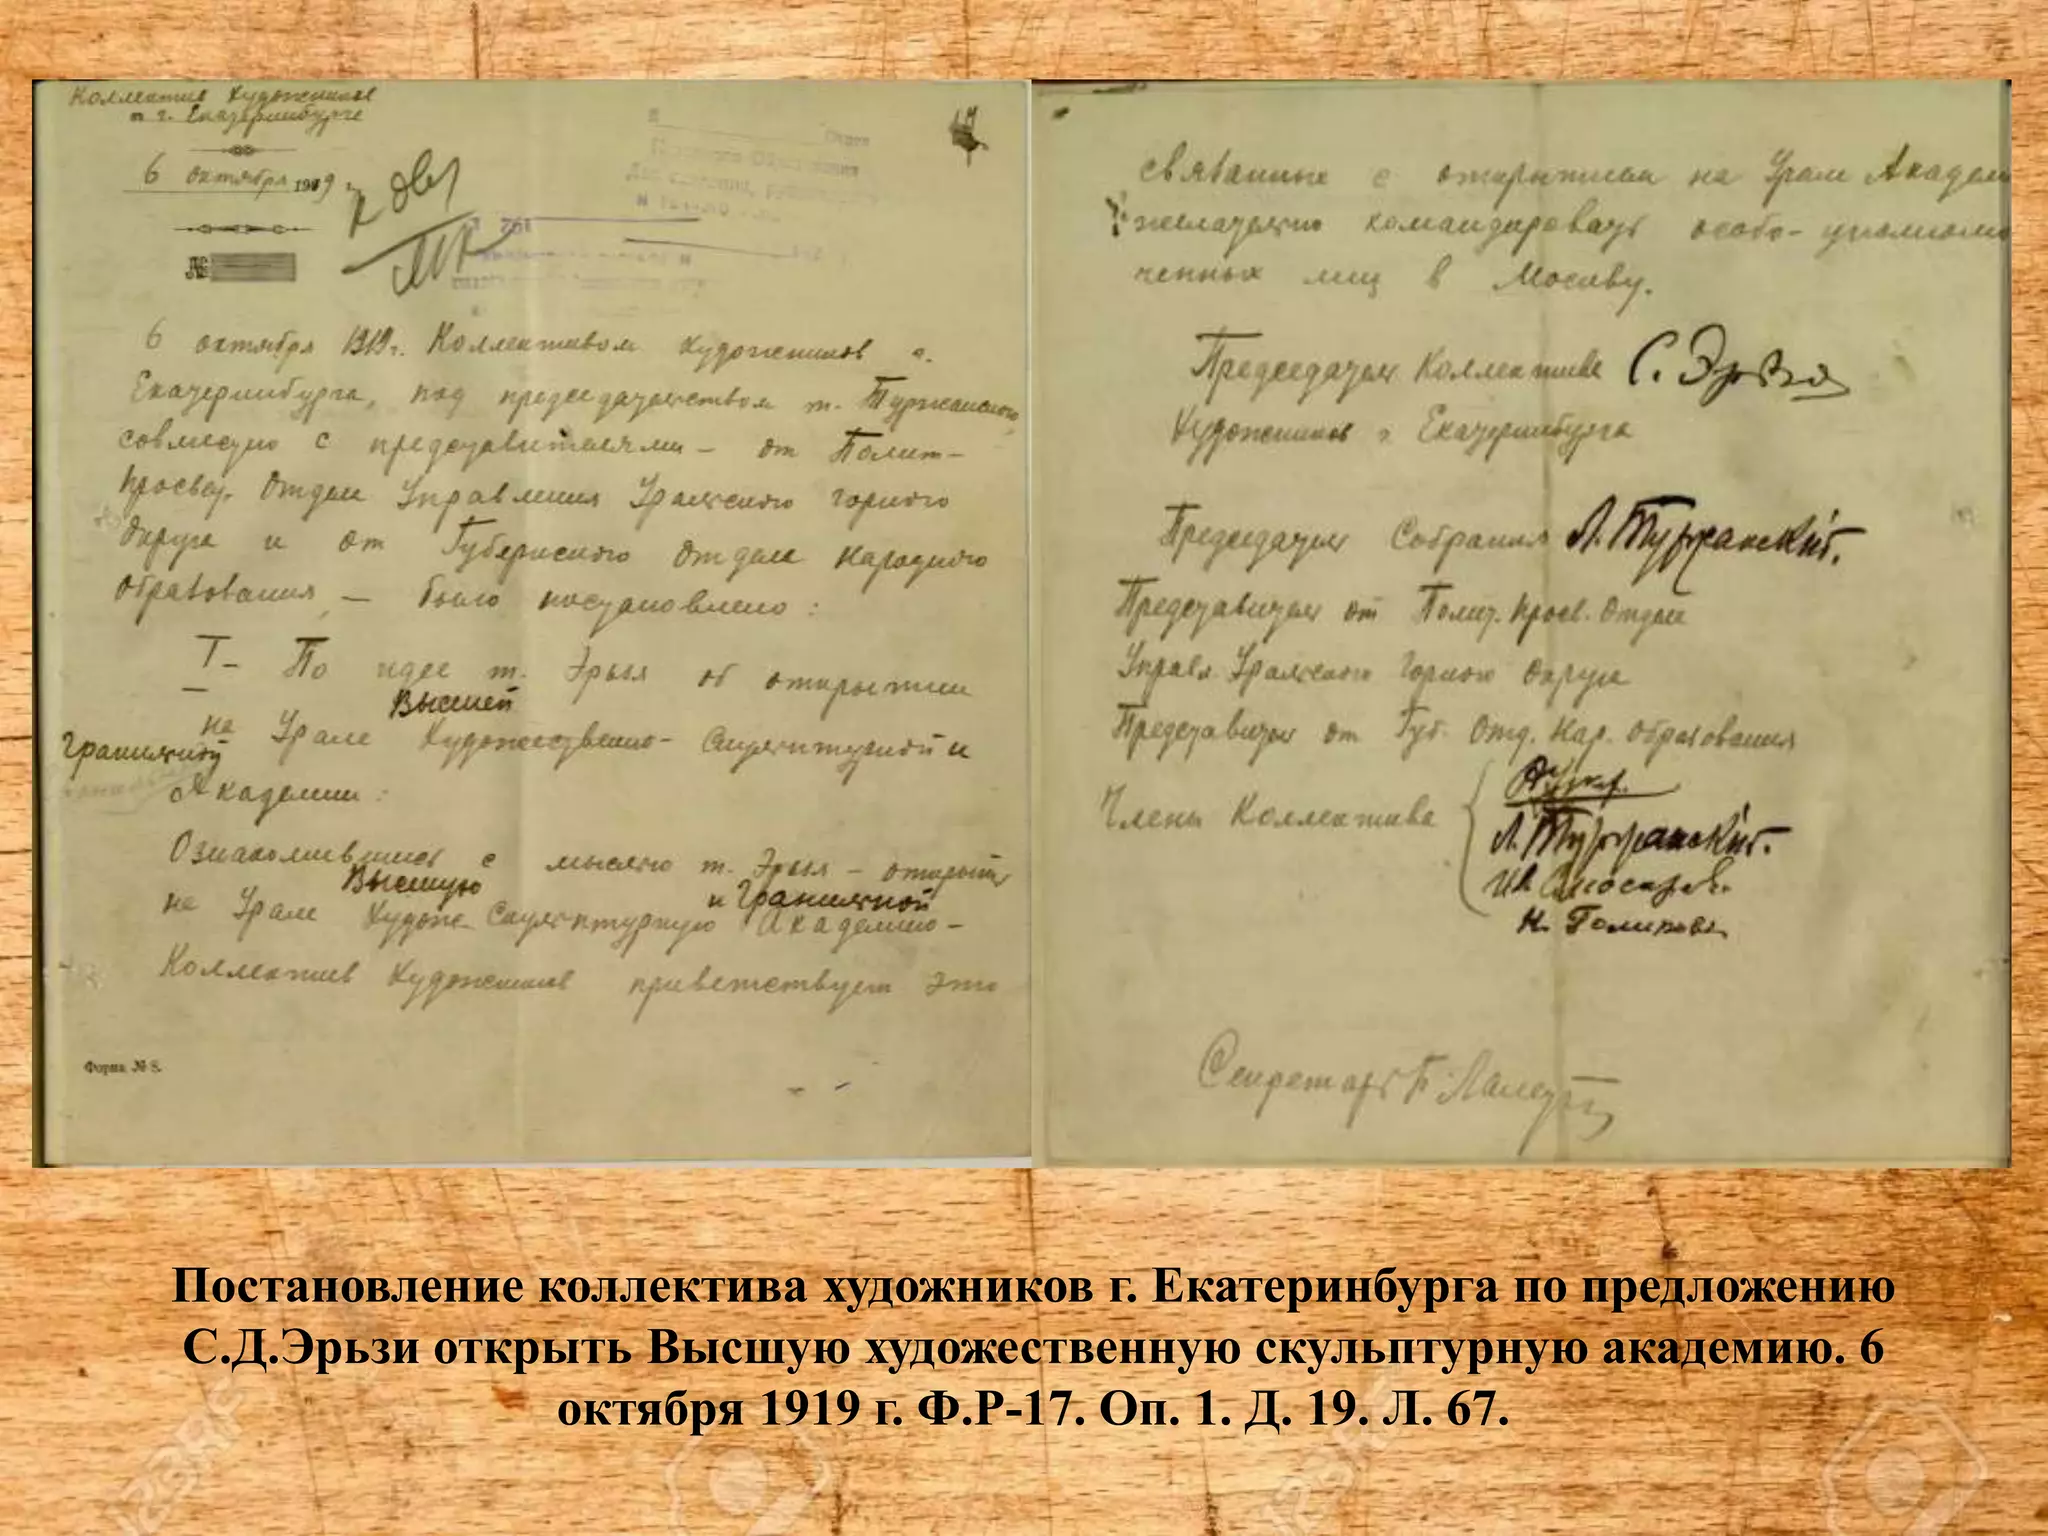 Коллектив Художников
г. Екатеринбурга
6 октября 1919 г.
№
6 октября 1919 г. Коллективом Художников г.
Екатеринбурга, под председательством т. Туржанского,
совместно с представителями – от Полит-
просвет. Отдела Управления Уральского горного
Округа и от Губернского Отдела Народного
Образования, – было постановлено:
I – По идее т. Эрьзя об открытии
Высшей
на Урале Художественно-Скульптурной и
Гранильной
Академии:
Ознакомившись с мыслью т. Эрьзя – открыть
Высшую и Гранильной
на Урале Художе. Скульптурную Академию –
Коллектив Художников приветствует это
Форма № 8.
связанные с открытием на Урале Академ
желательно командировать особо-уполномо
ченных лиц в Москву.
Председатель Коллектива С. Эрьзя
Художников г. Екатеринбурга
Председатель Собрания Л. Туржанскiй.
Представитель от Полит. просв. Отдела
Управл. Уральского Горного Округа
Представитель от Губ. Отд. Нар. Образования
Члены Коллектива
Л. Туржанскiй.
Ив. Слюсарев.
Секретарь
Постановление коллектива художников г. Екатеринбурга по предложению
С.Д.Эрьзи открыть Высшую художественную скульптурную академию. 6
октября 1919 г. Ф.Р-17. Оп. 1. Д. 19. Л. 67.
123RF
123RF